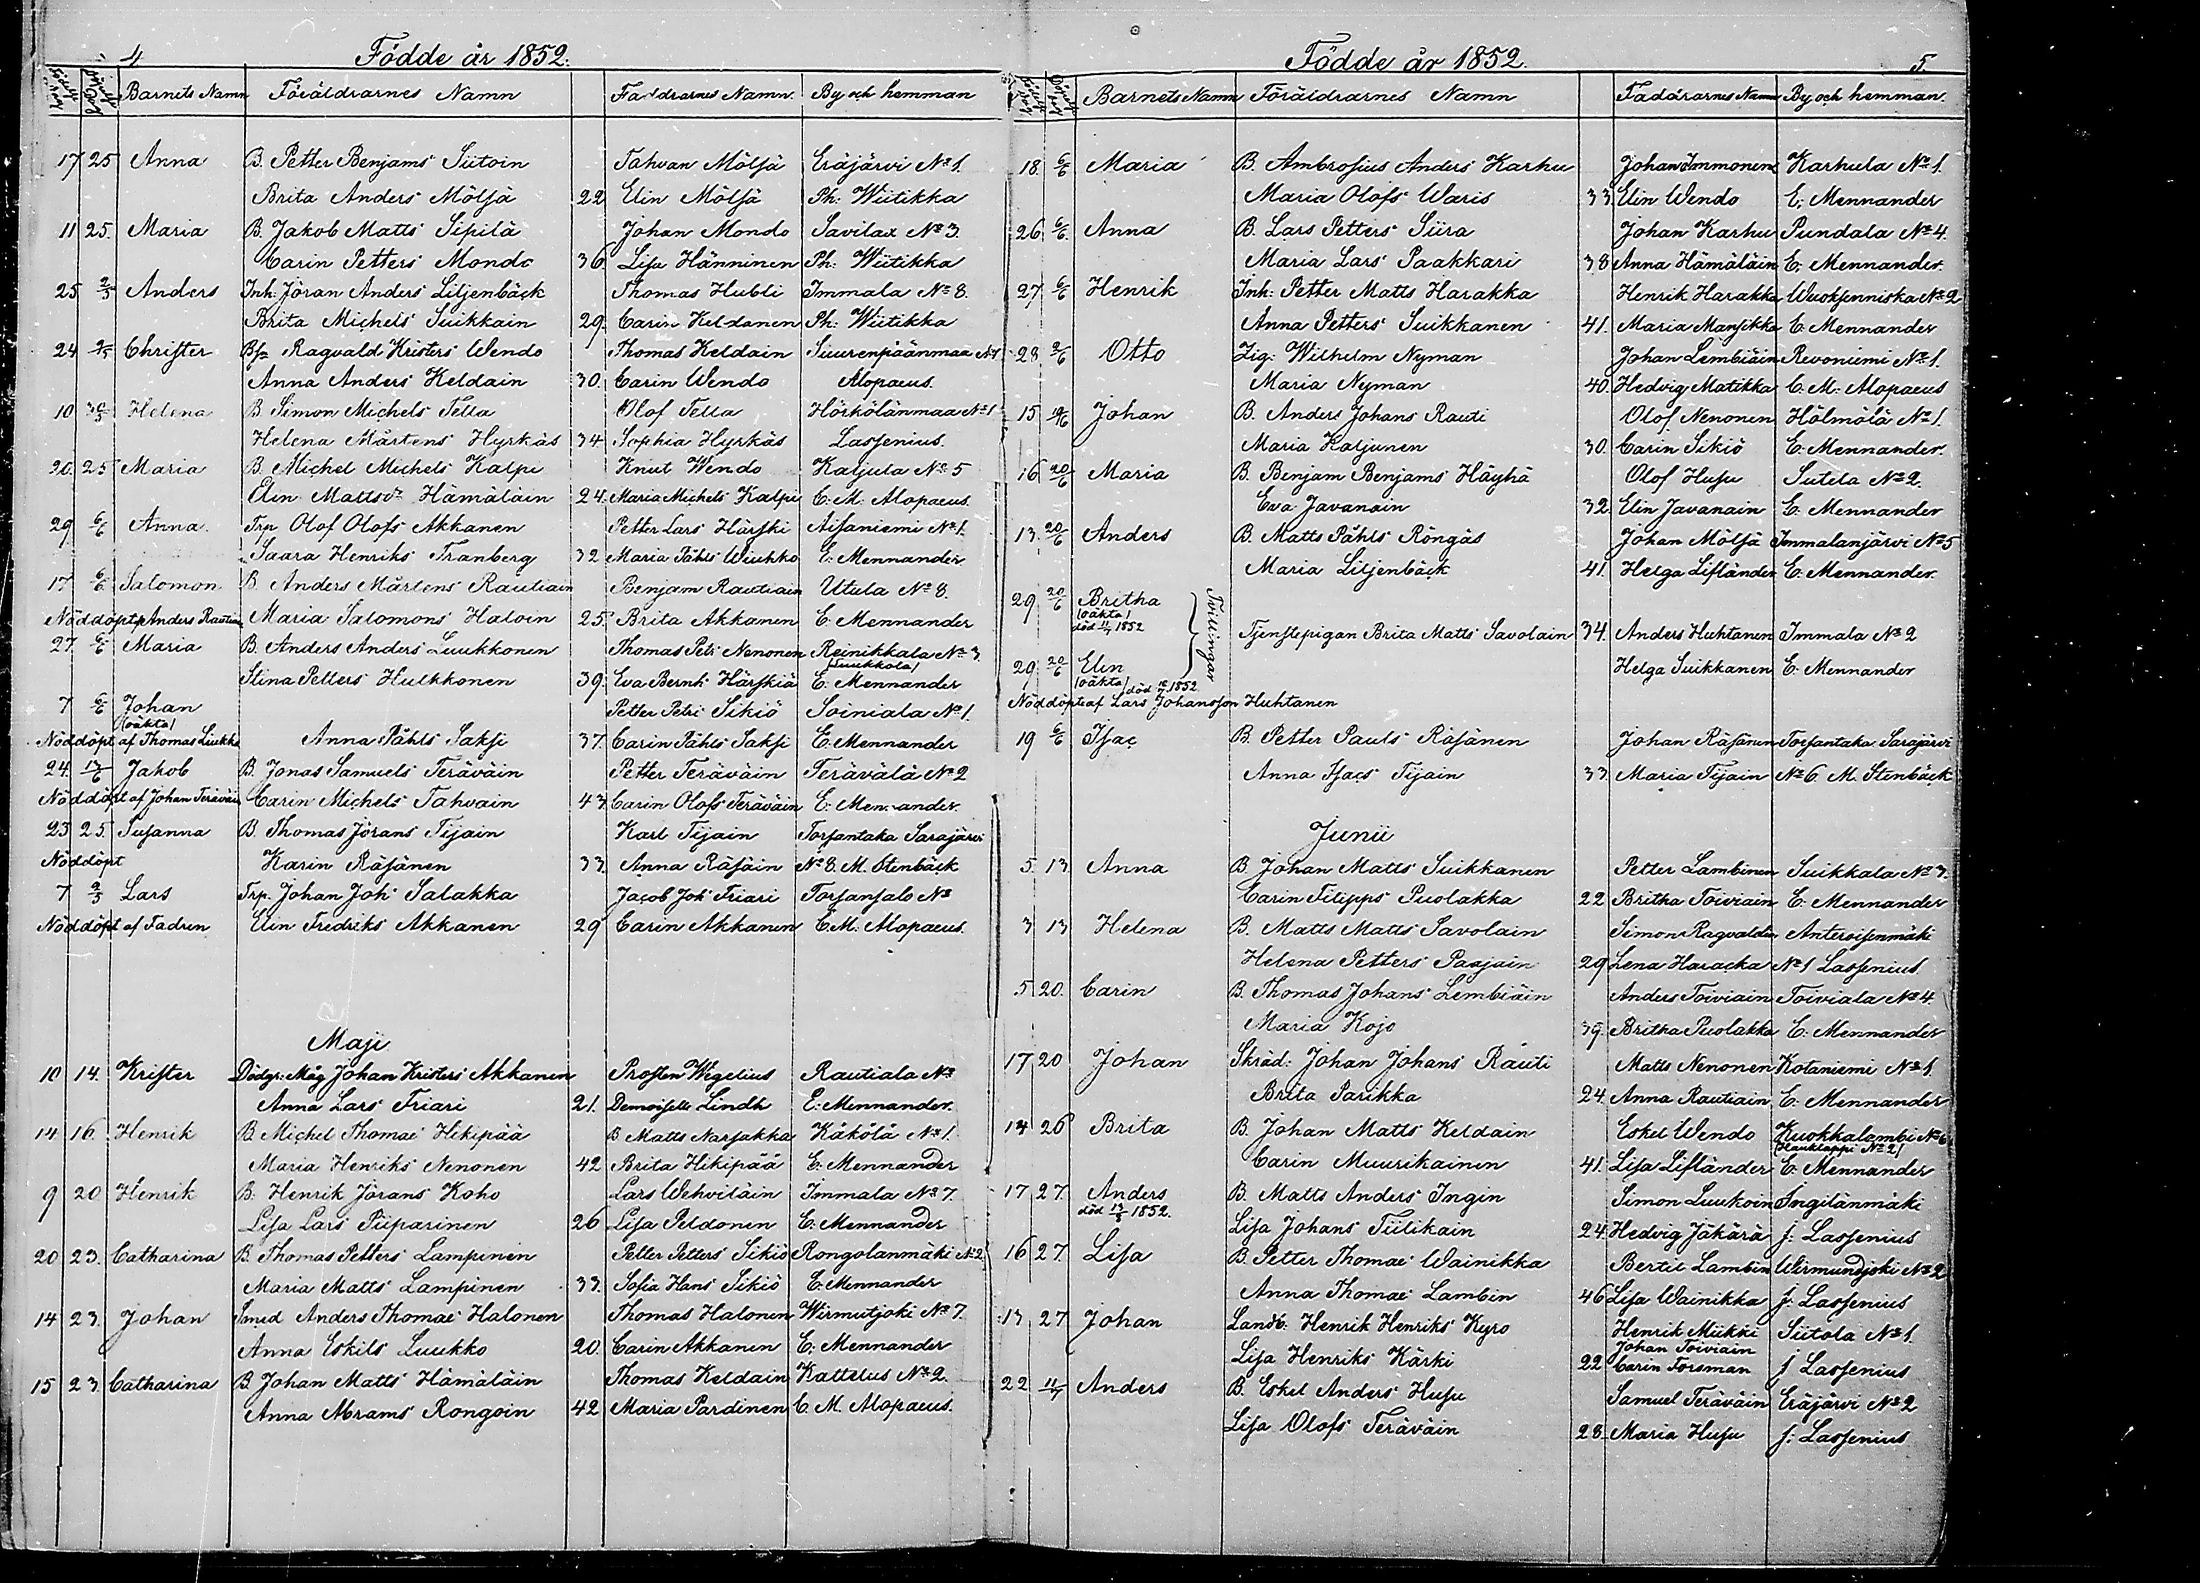 4 Födde år 1852.
Barnets Namn Föräldrarnes Namn Faddrarnes Namn. By och hemman
17 25 Anna B. Petter Benjams Siitoin Tahvan Möljä Eräjärvi No 1.
Brita Anders Möljä 22 Elin Möljä Ph: Wiitikka
11 25. Maria B. Jakob Matts Sipilä Johan Mondo Savilax No 3.
Carin Petters Mondo 36 Lisa Hänninen Ph: Wiitikka
25 2/5 Anders Inh: Jöran Anders Liljenbäck Thomas Hubli Immala No 8.
Brita Michels Suikkain 29. Carin Keldanen Ph: Wiitikka
24 Christer Ragvald Kristers Wendo Thomas Keldain Suurenpäänmaa
Anna Anders Keldain 30. Carin Wendo Alopaeus.
10 Helena B. Simon Michels Tella Olof Tella Hörkölänmaa No 1
Helena Mårtens Hyrkäs 34 Sophia Hyrkäs Lassenius.
20. 25 Maria B. Michel Michels Kalpi Knut Wendo Kaljula No 5
Elin Mattsdr Hämäläin 24. Maria Michels Kalpi C. M. Alopaeus.
29 6/6 Anna. Trp Olof Olofs Akkanen Petter Lars Härski Aisaniemi No 1.
Saara Henriks Tranberg 32 Maria Påhls Wiukko E. Mennander
17 6/6 Salomon B. Anders Mårtens Rautiain Benjam Rautiain Utula No 8.
Nöddöpt af Anders Rautiain Maria Salomons Haloin 25 Brita Akkanen E. Mennander
27 6/6 Maria B. Anders Anders Luukkonen Thomas Petr. Nenonen Reinikkala No 3
Stina Petters Hulkkonen 39. Eva Bernh: Härskiä E. Mennander
7 6/6 Johan Petter Petri Sikiö Soiniala No 1.
(oäkta)
Nöddöpt af Thomas Liukko Anna Påhls Saksi 37. Carin Påhls Saksi E. Mennander
24. 13/6 Jakob B. Jonas Samuels Teräväin Petter Teräväin Terävälä No 2
Nöddöpt af Johan Teräväin Carin Michels Tahvain 43 Carin Olofs Teräväin E. Mennander.
23 25. Susanna B. Thomas Jörans Tijain Karl Tijain Torsantaka Sarajärvi
Nöddöpt Karin Räsänen 33. Anna Räsäin No 8. M. Stenbäck
7 2/5 Lars Trp. Johan Joh: Salakka Jacob Joh Friari Torsansalo No
Nöddöpt af Fadren Elin Fredriks Akkanen 29 Carin Akkanen C. M. Alopaeus.
Maji
10 14. Krister Dödgr: Måg Johan Kristers Akkanen Prosten Wegelius Rautiala No
Anna Lars Friari 21. Demoiselle Lindh E. Mennander.
14 16. Henrik B Michel Thomae Hikipää B Matts Narjakka Käkölä No 1.
Maria Henriks Nenonen 42 Brita Hikipää E. Mennander
9 20 Henrik B: Henrik Jörans Koho Lars Wehviläin Immala No 7.
Lisa Lars Piiparinen 26 Lisa Peldonen E. Mennander
20 23. Catharina B. Thomas Petters Lampinen Petter Petters Sikiö Rongolanmäki No 2
Maria Matts Lampinen 33. Sofia Hans Sikiö E. Mennander
14 23. Johan Smed Anders Thomae Halonen Thomas Halonen Wirmutjoki No 7.
Anna Eskils Luukko 20. Carin Akkanen E. Mennander
15 23 Catharina B. Johan Matts Hämäläin Thomas Keldain Kattelus No 2.
Anna Abrams Rongoin 42 Maria Pardinen C. M. Alopaeus.
Födde år 1852. 5.
Barnets Namn Föräldrarnes Namn Faddrarnes Namn By och hemman.
18. 6/6 Maria B. Ambrosius Anders Karhu Johan Immonen Karhula No 1.
Maria Olofs Waris 33. Elin Wendo E. Mennander
26 6/6. Anna B. Lars Petters Siira Johan Karhu Pundala No 4.
Maria Lars Paakkari 38 Anna Hämäläin E. Mennander.
27 6/6 Henrik Inh: Petter Matts Harakka Henrik Harakka Wuoksenniska No 2
Anna Petters Suikkanen 41. Maria Mansikka E. Mennander
28 Otto Zig: Wilhelm Nyman Johan Lembiäin Revoniemi No 1.
Maria Nyman 40. Hedvig Matikka C. M. Alopaeus
15 Johan B. Anders Johans Rauti Olof Nenonen Hälmälä No 1.
Maria Kaljunen 30. Carin Sikiö E. Mennander.
16 20/6 Maria B. Benjam Benjams Häyhä Olof Husu Sutela No 2.
Eva Javanain 32 Elin Javanain E. Mennander
13. 20/6 Anders B. Matts Påhls Röngäs Johan Möljä Immalanjärvi No 5
Maria Liljenbäck 41. Helga Lifländer E. Mennander.
29 20/6 Britha Tvillingar
(oäkta)
död 11/7 1852
Tjenstepigan Brita Matts Savolain 34. Anders Huhtanen Immala No 2
29 20/6 Elin Helga Suikkanen E. Mennander
(oäkta) död 1852
Nöddöpte af Lars Johansson Huhtanen
19 6/6 Isac B. Petter Pauls Räsänen Johan Räsänen Torsantaka Sarajärvi
Anna Isacs Tijain 33 Maria Tijain No 6 M. Stenbäck
Junii
5 13 Anna B. Johan Matts Suikkanen Petter Lambinen Suikkala No 3.
Carin Filipps Puolakka 22 Britha Toiviain E. Mennander
3 13 Helena B. Matts Matts Savolain Simon Ragvaldin Anteroisenmäki
Helena Petters Paajain 29 Lena Haracka No 1 Lassenius
5 20. Carin B. Thomas Johans Lembiäin Anders Toiviain Toiviala No 4.
Maria Kojo 39. Britha Puolakka E. Mennander
17 20 Johan Skräd: Johan Johans Rauti Matts Nenonen Kotaniemi No 1.
Brita Parikka 24. Anna Rautiain E. Mennander
14 26 Brita B. Johan Matts Keldain Eskel Wendo Kuokkalambi No 6
(Hauklappi No 2)
Carin Muurikainen 41. Lisa Lifländer E. Mennander
17 27. Anders B. Matts Anders Ingin Simon Luukoin Ingilänmäki
död 13/8 1852. Lisa Johans Tiilikain 24 Hedvig Jäkärä J. Lassenius
16 27. Lisa B. Petter Thomae Wainikka Bertil Lambin Wirmundjoki No 2
Anna Thomae Lambin 46 Lisa Wainikka J: Lassenius
13 27 Johan Landb: Henrik Henriks Kyro Henrik Miikki Siitola No 1.
Johan Toiviain
Lisa Henriks Kärki 22 Carin Forsman J Lassenius
22 11/7 Anders B. Eskel Anders Husu Samuel Teräväin Eräjärvi No 2
Lisa Olofs Teräväin 28. Maria Husu J: Lassenius